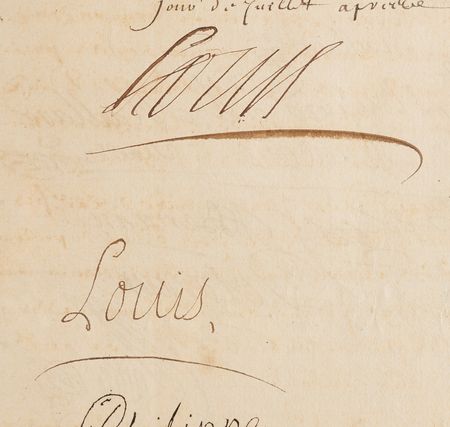 Jour de Juillet apres le
Louis
Louis,
Philippe